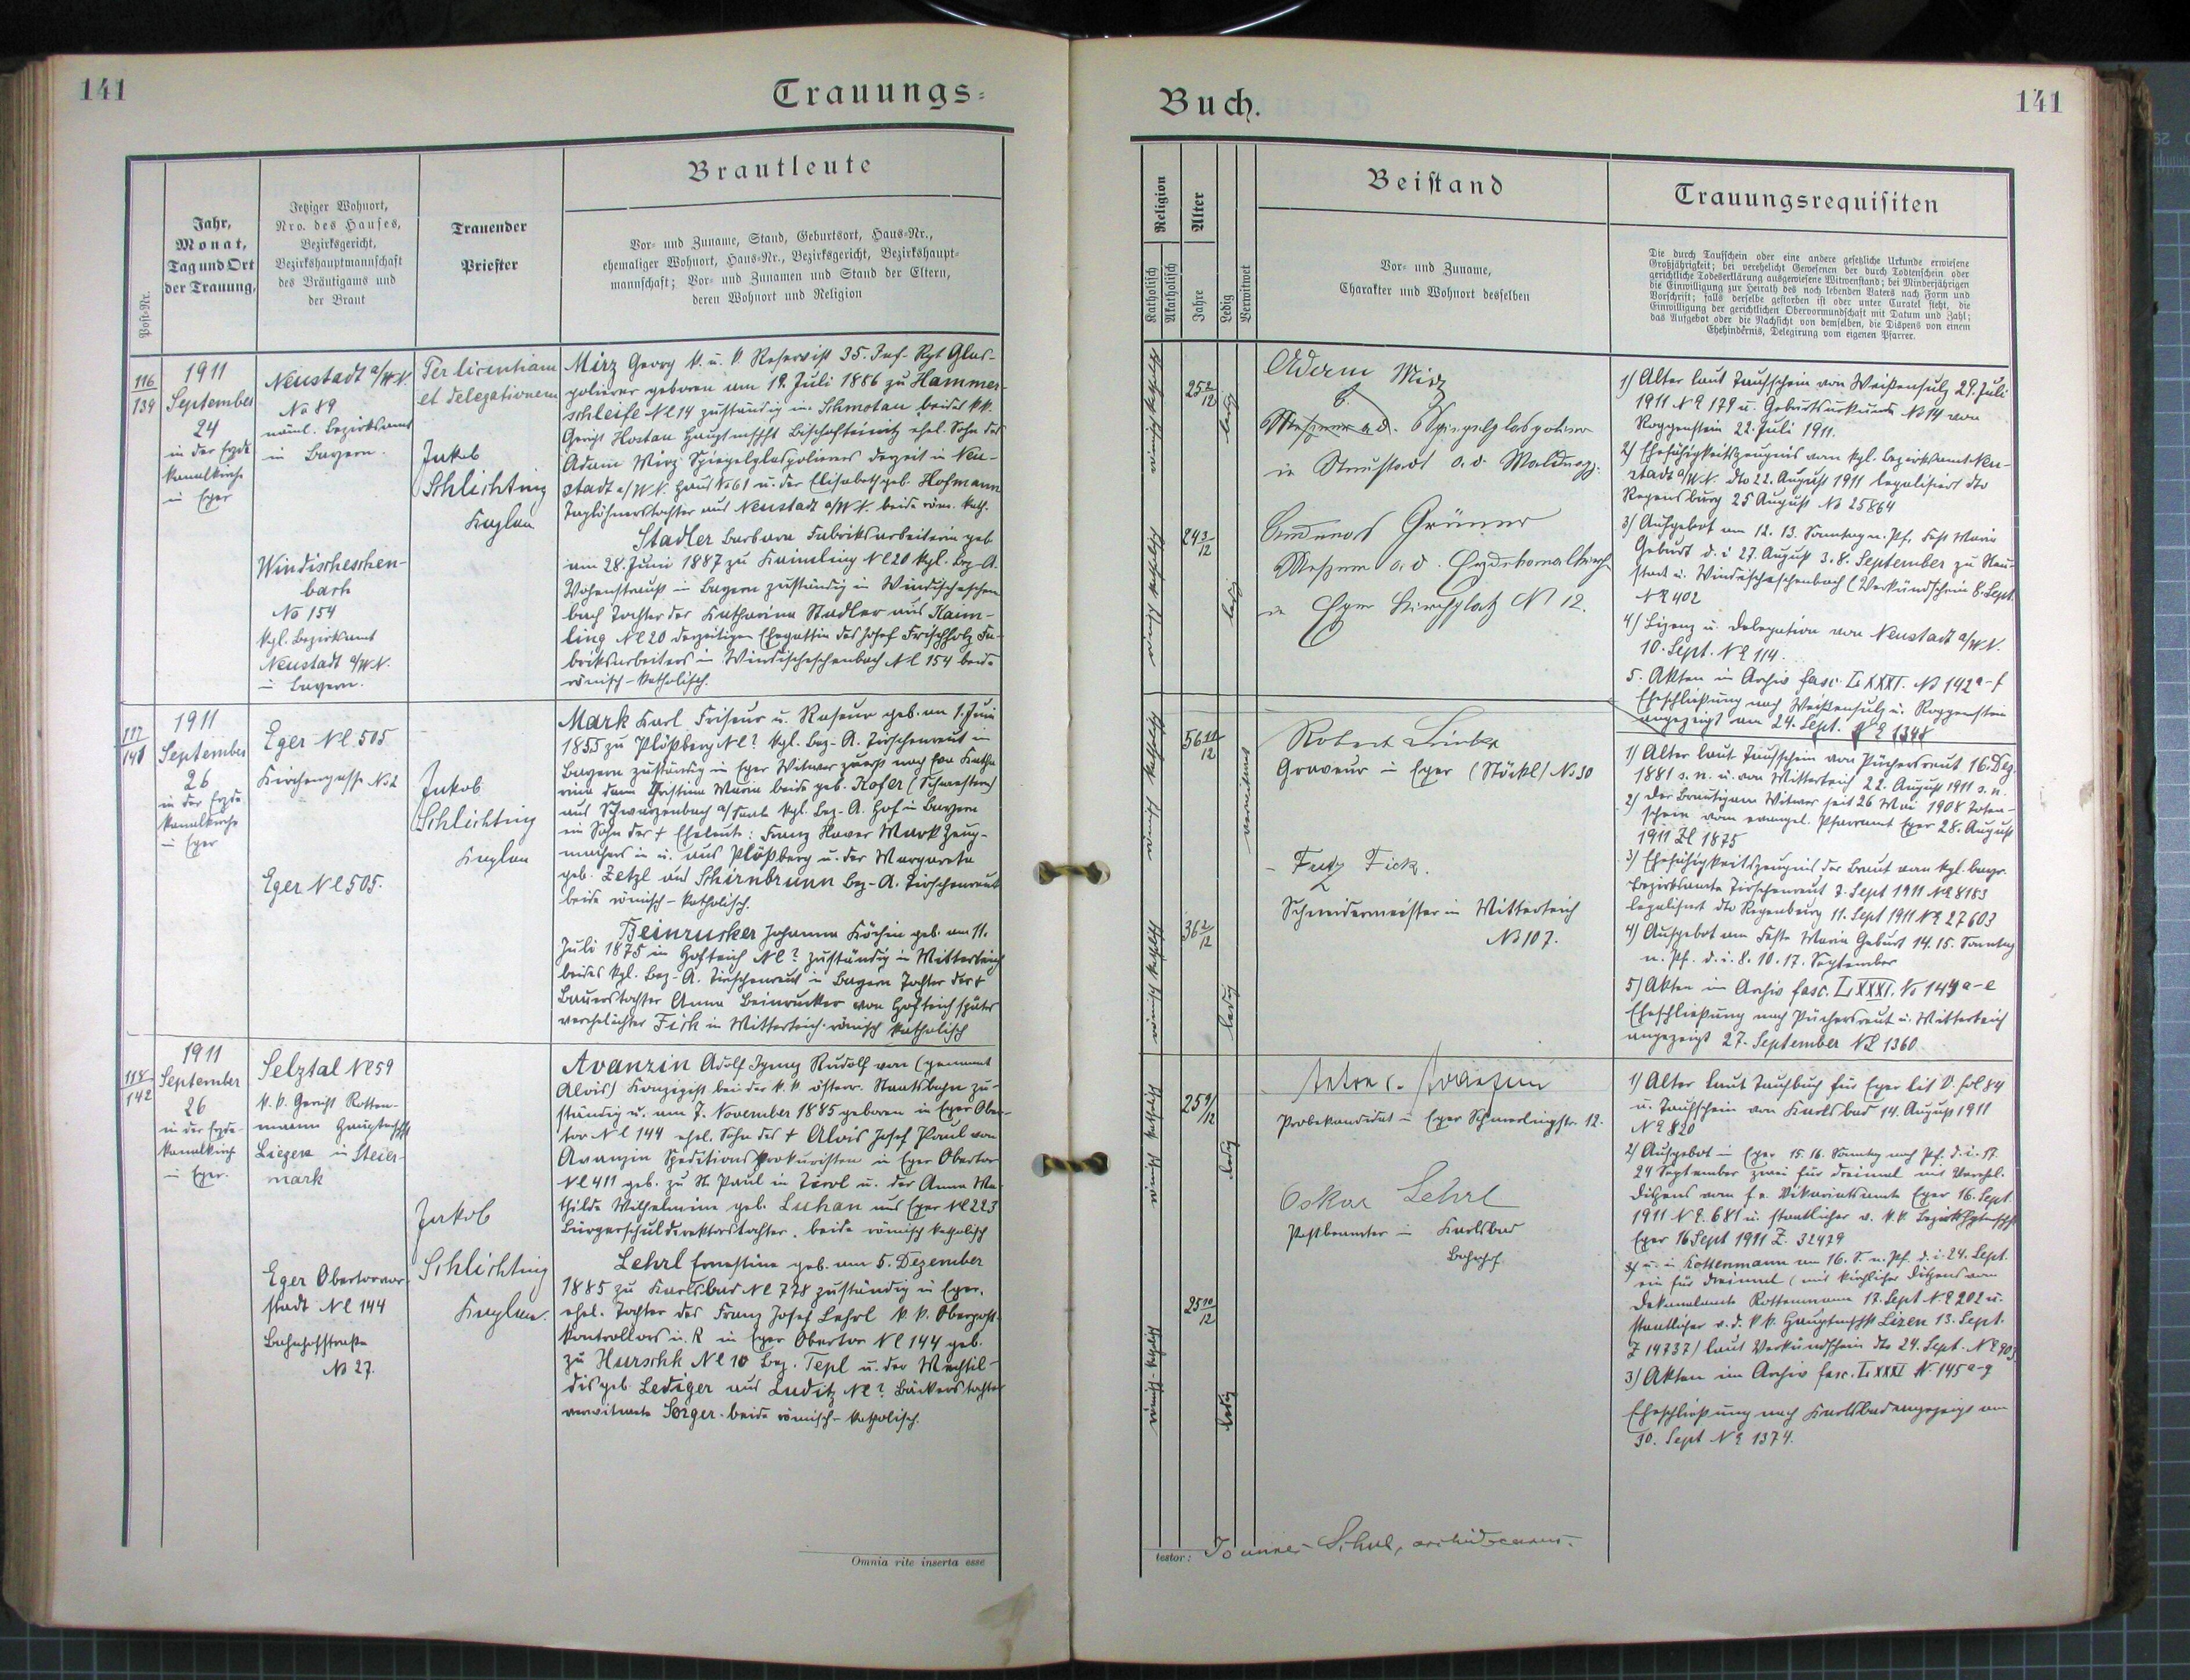 141
Trauungs=
Brautleute
Post-Nr.
Jahr,
Monat,
Tag und Ort
der Trauung,
Jetziger Wohnort,
Nro. des Hauses,
Bezirksgericht,
Bezirkshauptmannschaft
des Bräutigams und
der Braut
Trauender
Priester
Vor- und Zuname, Stand, Geburtsort, Haus-Nr.,
ehemaliger Wohnort, Haus-Nr., Bezirksgericht, Bezirkshaupt-
mannschaft; Vor- und Zunamen und Stand der Eltern,
deren Wohnort und Religion
116
139
1911
September
24
in der Erzde
kanalkirche
in Eger
Neustadt a/W.N.
No 89
näml. Bezirksamt
in Bayern.
Windischeschen-
bach
No 154
kgl. Bezirksamt
Neustadt a/W.N.
in Bayern.
Per licentiam
et delegationem
Jakob
Schlichting
Kaplan
Mirz Georg k. u. k. Reservist 35. Inf. Rgt Glas-
polierer geboren am 19. Juli 1886 zu Hammer-
schleife Nl 14 zuständig in Schmolau beides k.k.
Gericht Hostau Hauptmschft Bischofteinitz ehel. Sohn des
Adam Mirz Spiegelglaspolierers derzeit in Neu-
stadt a/W.N. Haus No 61 u. der Elisabeth geb. Hofmann
Taglöhnerstochter aus Neustadt a/W.N. beide röm. kath.
Stadler Barbara Fabriksarbeiterin geb
am 28. Juni 1887 zu Kaimling Nl 20 kgl. Bez-A.
Vohenstrauß in Bayern zuständig in Windischeschen
bach Tochter der Katharina Stadler aus Kaim-
ling Nl 20 derzeitigen Ehegattin des Josef Frischholz Fa-
briksarbeiters in Windischeschenbach Nl 154 beide
römisch-katholisch.
117
1911
September
26
in der Erzde
kanalkirche
in Eger
Eger Nl 505
Kirchengasse No 2
Eger Nl 505.
Jakob
Schlichting
Kaplan
Mark Karl Friseur u. Raseur geb. am 1. Juni
1855 zu Plößberg Nl? kgl. Bez-A. Tirschenreut in
Bayern zuständig in Eger Witwer zuerst nach Eva Katha
rina dann Christina Maria beide geb. Hofer (Schwestern)
aus Schwarzenbach a/Saale kgl. Bez-A. Hof in Bayern
ein Sohn der † Eheleute: Franz Xaver Mark Zeug-
machers in u. aus Plößberg u. der Margareta
geb. Zetzl aus Schirnbrunn Bez-A. Tirschenreut
beide römisch-katholisch.
Beinrucker Johanna Köchin geb. am 11.
Juli 1875 in Hofteich Nl? zuständig in Mitterteich
beides kgl. Bez-A. Tirschenreut in Bayern Tochter der †
Bauerstochter Anna Beinrucker von Hofteich später
verehelichter Fick in Mitterteich. römisch katholisch
118
142
1911
September
26
in der Erzde-
kanalkirche
in Eger.
Selztal Nl 59
k.k. Gericht Rotten-
mann Hauptmschft
Liezen in Steier-
mark
Eger Obertorvor-
stadt Nl 144
Bahnhofstraße
No 27.
Jakob
Schlichting
Kaplan.
Avanzin Adolf Ignaz Rudolf von (genannt
Alois) Konzipist bei der k.k. österr. Staatsbahn zu-
ständig u. am 7. November 1885 geboren in Eger Ober-
tor Nl 144 ehel. Sohn des † Alois Josef Paul von
Avanzin Speditionsprokuristen in Eger Obertor
Nl 411 geb. zu St. Paul in Tirol u. der Anna Ma-
thilde Wilhelmine geb. Luhan aus Eger Nl 223
Bürgerschuldirektorstochter. beide römisch katholisch
Lehrl Ernestine geb. am 5. Dezember
1885 zu Karlsbad Nl 778 zuständig in Eger.
ehel. Tochter des Franz Josef Lehrl k.k. Oberpost-
kontrollors i. R in Eger Obertor Nl 144 geb.
zu Hurschk Nl 10 Bez. Tepl u. der Mechtil-
dis geb. Lediger aus Luditz Nl? Bäckerstochter
verwitwete Sorger. beide römisch-katholisch.
Omnia rite inserta esse
Buch.
141
Religion
Katholisch
Akatholisch
Alter
Jahre
Ledig
Verwitwet
Beistand
Vor- und Zuname,
Charakter und Wohnort desselben
Trauungsrequisiten
Die durch Taufschein oder eine andere gesetzliche Urkunde erwiesene
Großjährigkeit; bei verehelicht Gewesenen der durch Todtenschein oder
gerichtliche Todeserklärung ausgewiesene Witwenstand; bei Minderjährigen
die Einwilligung zur Heirath des noch lebenden Vaters nach Form und
Vorschrift; falls derselbe gestorben ist oder unter Curatel steht, die
Einwilligung der gerichtlichen Obervormundschaft mit Datum und Zahl;
das Aufgebot oder die Nachsicht von demselben, die Dispens von einem
Ehehindernis, Delegirung vom eigenen Pfarrer.
25 2/12
ledig
24 3/12
ledig
Adam Mirz
Spiegelglaspolierer
in Neustadt a. d. Waldnaab.
Grüner
Messner a. d. Erzdekanalkirche
in Eger Kirchplatz No 12.
1) Alter laut Taufschein von Weißensulz 29. Juli
1911 No 179 u. Geburtsurkunde No 14 von
Roggenstein 22. Juli 1911.
2) Ehefähigkeitszeugnis vom kgl. Bezirksamt Neu-
stadt a/W.N. dto 22. August 1911 legalisiert dto
Regensburg 25 August No 25864
3) Aufgebot am 12. 13. Sonntag n. Pf. Fest Mariä
Geburt d. i 27. August 3. 8. September zu Neu-
stadt u. Windischeschenbach (Verkündschein 8. Sept.
No 402
4) Lizenz u. Delegation von Neustadt a/W.N.
10. Sept. No 114.
5. Akten in Archiv fasc. LXXXI. No 142 a-f
Eheschließung nach Weißensulz u. Roggenstein
angezeigt am 24. Sept. No 1348
römisch katholisch
ledig
verwitwet
36 2/12
Robert
Graveur in Eger (Stöckl) No 30
Fritz Fick.
Schneidermeister in Mitterteich
No 107.
1) Alter laut Taufschein von Püchersreut 16. Dez.
1881 s. n. u. von Mitterteich 22. August 1911 s. n.
2) Der Bräutigam Witwer seit 26 Mai 1908 Toten-
schein vom evangel. Pfarramt Eger 28. August
1911 Zl 1875
3) Ehefähigkeitszeugnis der Braut vom kgl. bayr.
Bezirksamte Tirschenreut 7. Sept 1911 No 8183
legalisiert dto Regensburg 11. Sept 1911 No 27603
4) Aufgebot am Feste Mariä Geburt 14. 15. Sonntag
n. Pf. d. i. 8. 10. 17. September
5) Akten im Archiv fasc. LXXXI. No 144 a-e
Eheschließung nach Püchersreut u. Mitterteich
angezeigt 27. September No 1360
ledig
25 10/12
ledig
Probekandidat in Eger Schmerlingstr. 12.
Oskar Lehrl
Postbeamter in Karlsbad
Bahnhof
1) Alter laut Taufbuch für Eger lit V. fol 84
u. Taufschein von Karlsbad 14. August 1911
No 820
2) Aufgebot in Eger 15. 16. Sonntag nach Pf. d. i. 17.
24 September zwei für dreimal mit
Dispens vom f. e. Vikariatsamte Eger 16. Sept.
1911 No 681 u. staatlicher v. k.k. Bezirkshptmschft
Eger 16 Sept 1911 Z. 32479
u. in Rottenmann am 16. S. n. Pf. d. i. 24. Sept.
ein für dreimal (mit kirchlicher Dispens vom
Dekanalamte Rottenmann 17. Sept No 202 u.
staatlicher v. d. k.k. Hauptmschft Lizen 13. Sept.
Z 14737) laut Verkündschein dto 24. Sept. No 903
3) Akten im Archiv fasc. LXXXI No 145 a-g
Eheschließung nach Karlsbad angezeigt am
30. Sept No 1374.
testor:
archidecanus.